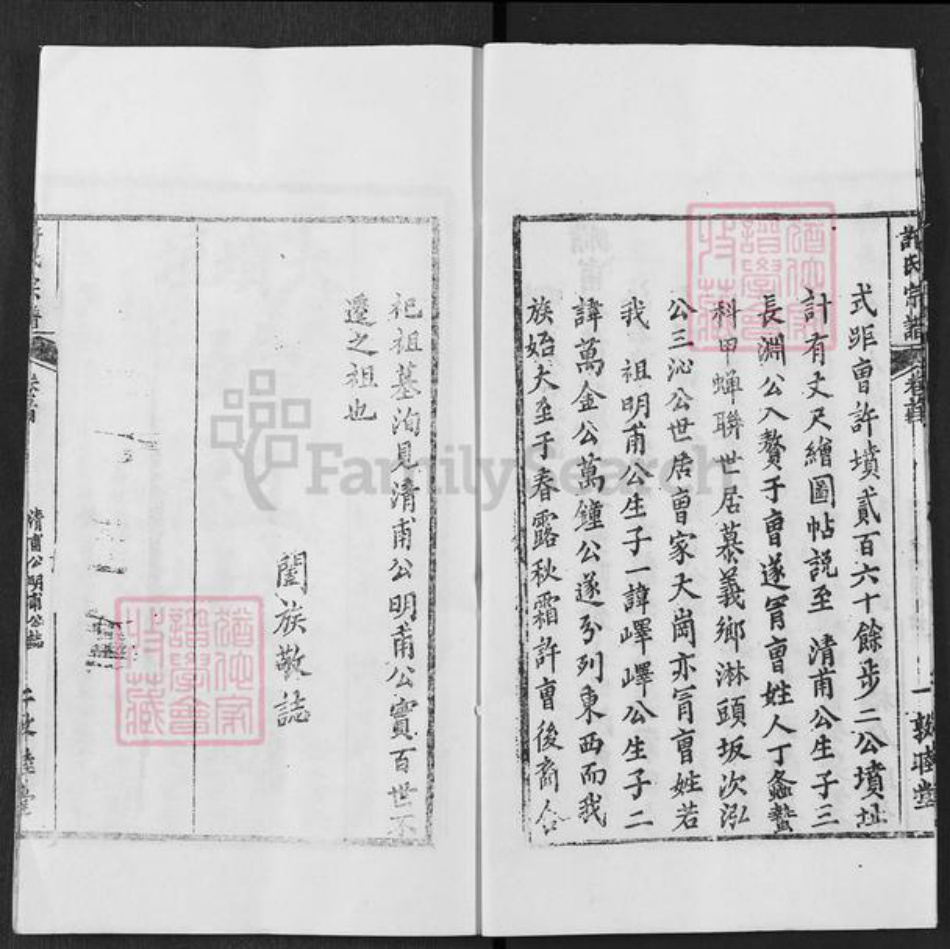 許氏宗譜 卷首 一 敦睦堂
式距曾許墳貳百六十餘步二公墳址
計有丈尺繪圖帖説至 清甫公生子三
長淵公入贅于曾遂冐曾姓人丁螽蟄
科甲蟬聨世居慕義鄉淋頭坂次泓
公三沁公世居曾家大崗亦冐曾姓若
我 祖明甫公生子一諱嶧嶧公生子二
諱萬金公萬鐘公遂分列東西而我
族始大至于春露秋霜許曾後裔合
祀祖墓洵見清甫公明甫公實百世不
遷之祖也
闔族敬誌
清甫公明甫公誌
譜學會
收藏
FamilySearch